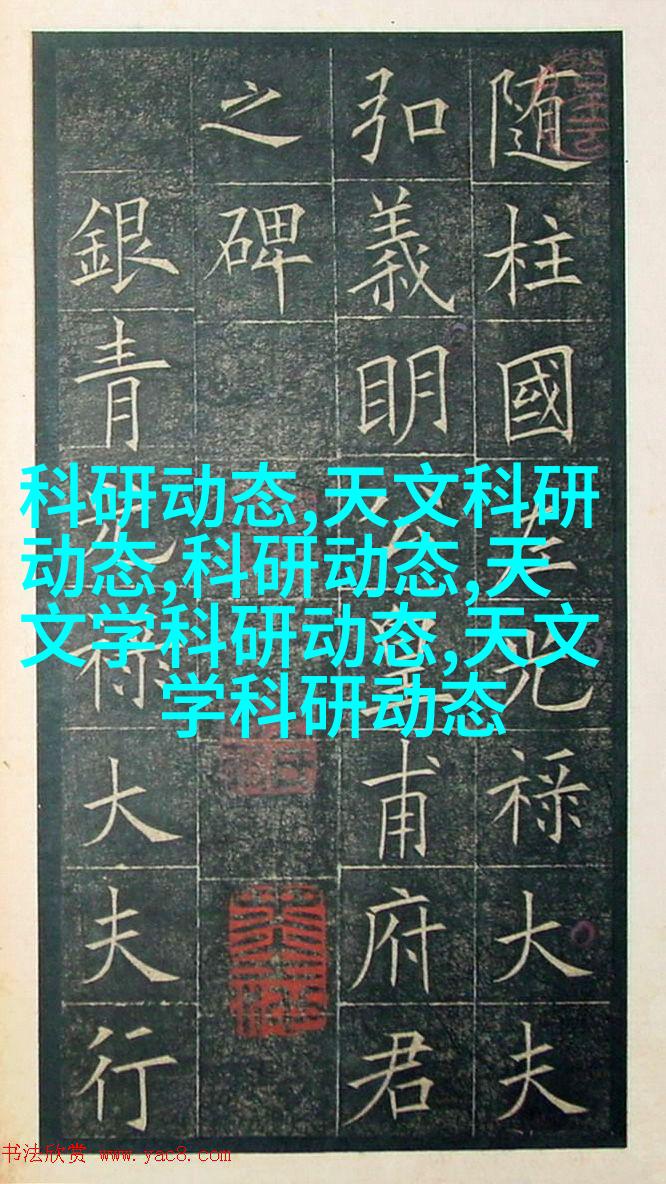 随柱國左光祿大夫
弘義明公皇甫府君
之碑
銀青光祿大夫行
科研动态,天文科研
动态,科研动态,天
文学科研动态,天文
学科研动态
书法欣赏 www.yac8.com